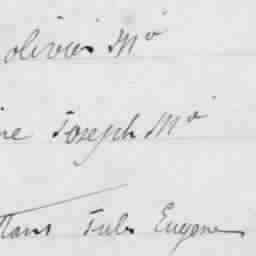 olivier Md
ne Joseph Md
ttans Jules Eugene